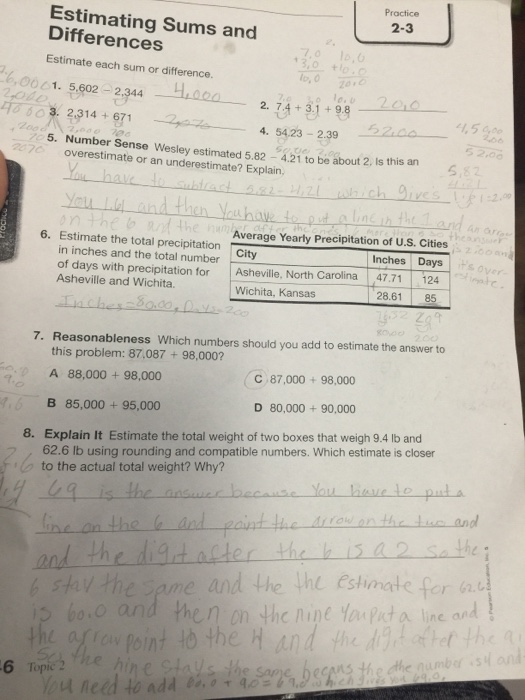 Estimating Sums and
Differences
Practice
2-3
Estimate each sum or difference.
7,0 10,0
+3,0 +10.0
10,0 20.0
1. 5,602 − 2,344 4,000
2. 7.4 + 3.1 + 9.8 20,0
3. 2,314 + 671
4. 54.23 − 2.39 52.00
5. Number Sense Wesley estimated 5.82 − 4.21 to be about 2. Is this an
overestimate or an underestimate? Explain.
You have to subtract 5.82-4.21 which gives
You 1.61 and then You have to put a line in the 1 and an
on the 6 and the number after the
6. Estimate the total precipitation
in inches and the total number
of days with precipitation for
Asheville and Wichita.
Inches=80.00, Days=200
Average Yearly Precipitation of U.S. Cities
City Inches Days
Asheville, North Carolina 47.71 124
Wichita, Kansas 28.61 85
76.32 209
200
7. Reasonableness Which numbers should you add to estimate the answer to
this problem: 87,087 + 98,000?
A 88,000 + 98,000
C 87,000 + 98,000
B 85,000 + 95,000
D 80,000 + 90,000
8. Explain It Estimate the total weight of two boxes that weigh 9.4 lb and
62.6 lb using rounding and compatible numbers. Which estimate is closer
to the actual total weight? Why?
69 is the answer because You have to put a
line on the 6 and point the arrow on the two and
and the digit after the 6 is a 2 so the
6 stay the same and the the estimate for 62.6
is 60.0 and then on the nine You put a line and
the arrow point to the 4 and the digit after the
the nine stays the same the number is 4 and
You need to add 60.0 + 9.0 = 69.0 which gives
6 Topic 2